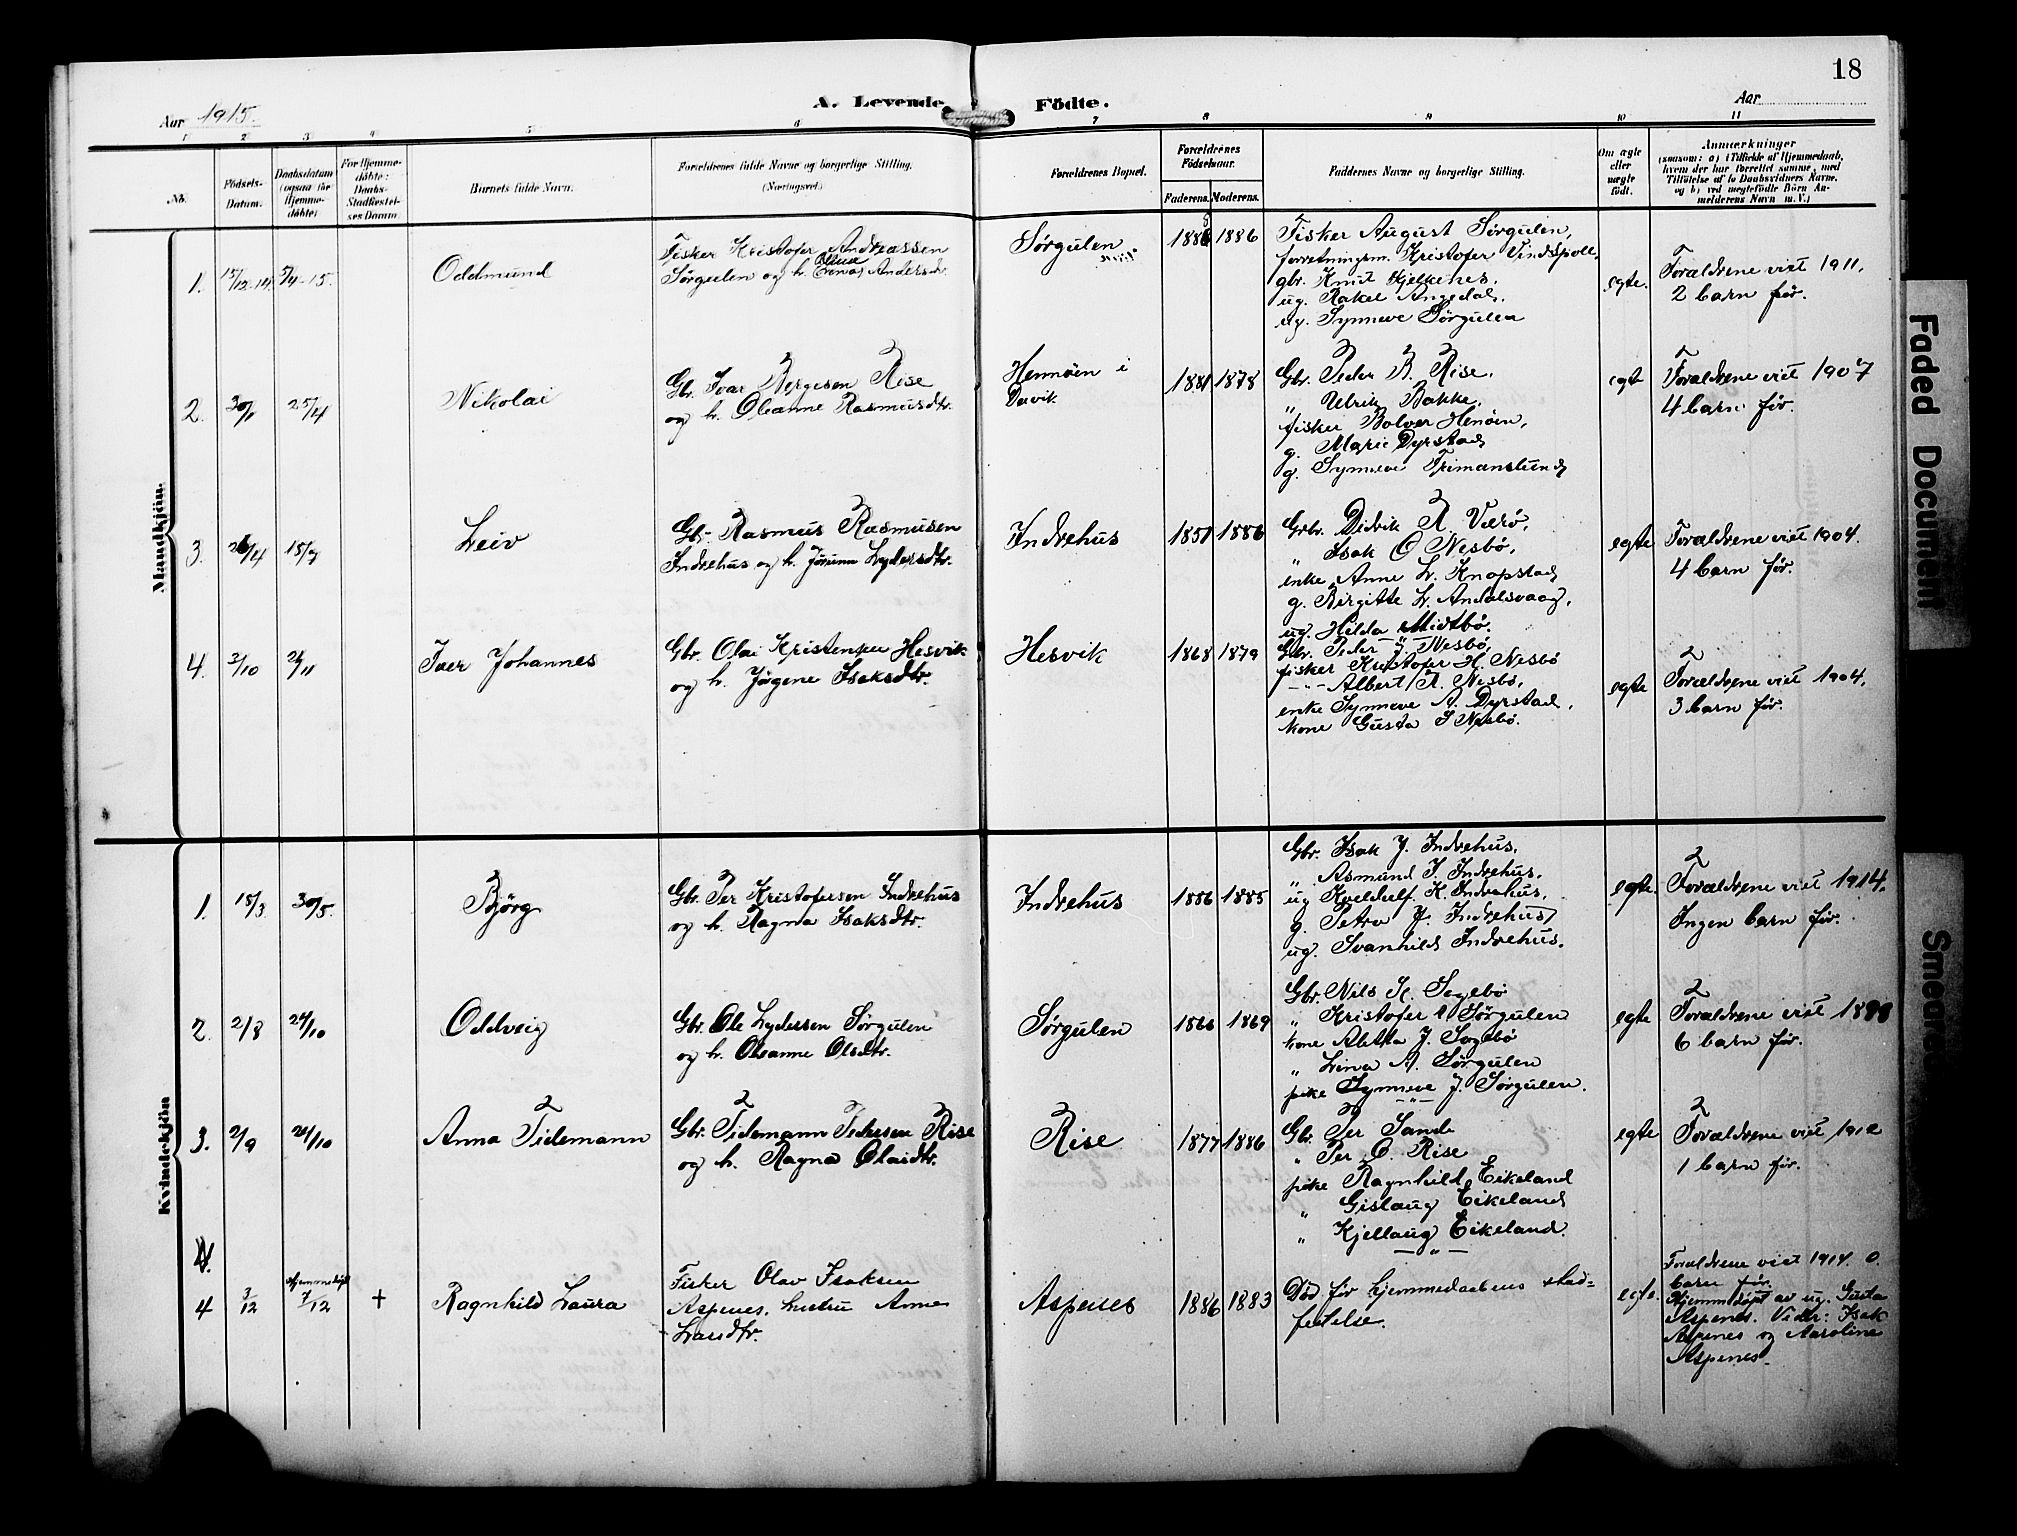 18
Aar 1915.
A. Levende Födte.
Aar
1 2 3 4 5 6 7 8 9 10 11
No.
Födsels-Datum.
Daabsdatum (ogsaa for Hjemmedöbte)
For Hjemmedöbte: Daabs-Stadfæstelses Datum.
Barnets fulde Navn.
Forældrenes fulde Navne og borgerlige Stilling.
(Næringsvei.)
Forældrenes Bopæl.
Forældrenes Födselsaar.
Faderens. Moderens.
Faddernes Navne og borgerlige Stilling.
Om ægte eller uægte født.
Anmærkninger
(saasom: a) i Tilfælde af Hjemmedaab, hvem der har forrettet samme, med Tilföielse af to Daabsvidners Navne, og b) ved uægtefödte Börn Anmelderens Navn m. V.)
Mandkjön.
1. 15/12-14. 5/4-15. Oddmund
Fisker Kristofer Andreassen
Sørgulen og h. Andersdtr.
Sørgulen
1886
Fisker August Sørgulen,
forretningsm. Kristofer Vindspoll,
gbr. Knut Hjelkenes,
ug. Rakel Angedal,
ug. Synneve Sørgulen
egte.
Forældrene viet 1911.
2 barn før.
2. 30/1 25/4 Nikolai
Gbr. Ivar Bergesen Rise
og h. Oleanne Rasmusdtr.
Hennøen i
Davik
1881 1878
Gbr. Peder B. Rise,
" Ulrik Bakke,
fisker Bolver Henøen,
g. Marie Dyrstad
g. Synneve Frimanslund
egte
Forældrene viet 1907
4 barn før.
3. 26/4 15/7 Leiv
Gbr. Rasmus Rasmusen
Indrehus og h. Jørunn Lydersdtr.
Indrehus
1857 1886
Grbr. Didrik R. Værø,
" Isak O Nesbø,
enke Anne L. Knapstad
g. Birgitte L. Andalsvaag,
ug. Hilda Midtbø.
egte
Forældrene viet 1904.
4 barn før.
4. 3/10 2/11 Iver Johannes
Gbr. Olai Kristensen Hesvik
og h. Jørgene Isaksdtr.
Hesvik
1868 1879
Gbr. Peder J. Nesbø,
fisker Kristofer H. Nesbø
—"— Albert R. Nesbø,
enke Synneve A. Dyrstad,
kone Gusta I Nesbø.
egte
Forældrene viet 1904.
3 barn før.
Kvindekjön
1. 15/3. 30/5. Bjørg
Gbr. Per Kristofersen Indrehus
og h. Ragna Isaksdtr.
Indrehus
1886 1885
Gbr. Isak J. Indrehus,
" Asmund I. Indrehus,
ug Kveldulf K. Indrehus,
g. Petra J. Indrehus,
ug. Svanhild Indrehus.
egte.
Forældrene viet 1914.
Ingen barn før.
2. 2/8 24/10 Oddveig
Gbr. Ole Lydersen Sørgulen
og h. Oleanne Olsdtr.
Sørgulen
1866 1869
Gbr. Nils K. Sagebø
" Kristofer l Sørgulen
kone Aletta J. Sagebø
" Lina A. Sørgulen
pike Synneve J. Sørgulen.
egte
Forældrene viet
6 barn før.
3. 2/9 24/10 Anna Tidemann
Gbr. Tidemann Pedersen Rise
og h. Ragna Olaidtr.
Rise
1877 1886
—"—
Gbr. Per Sande
" Per O. Rise
pike Ragnhild Eikeland
" Gislaug Eikeland
" Kjellaug Eikeland.
—"—
egte
Forældrene viet 1912
1 barn før.
4 3/12 Hjemmedøpt 7/12 + Ragnhild Laura
Fisker Olav Isaksen
Aspenes, hustru Anne
Larsdtr.
Aspenes
1886 1883
Død før hjemmedaabens stad=
festelse.
egte.
Forældrene viet 1914. 0.
barn før.
Hjemmedøpt av ug. Gusta
Aspenes. Vidner: Isak
Aspenes og Karoline
Aspenes.
Faded Document
Smeared